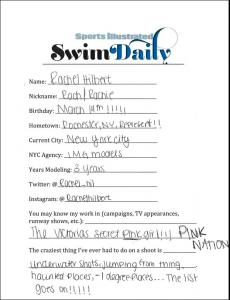 Sports Illustrated
SwimDaily
Name: Rachel Hilbert
Nickname: Rach/Rachie
Birthday: March 14th!!!!!
Hometown: Rochester, N.Y, Represent!!
Current City: New York City
NYC Agency: IMG models
Years Modeling: 3 years
Twitter: @
Instagram: @ Rachelhilbert
You may know my work in (campaigns, TV appearances,
runway shows, etc.):
The Victorias Secret PINK girl!!! PINK
NATION
The craziest thing I've ever had to do on a shoot is
underwater shots, jumping from thing,
haunted places, -1 degree places... The list
goes on!!!!!